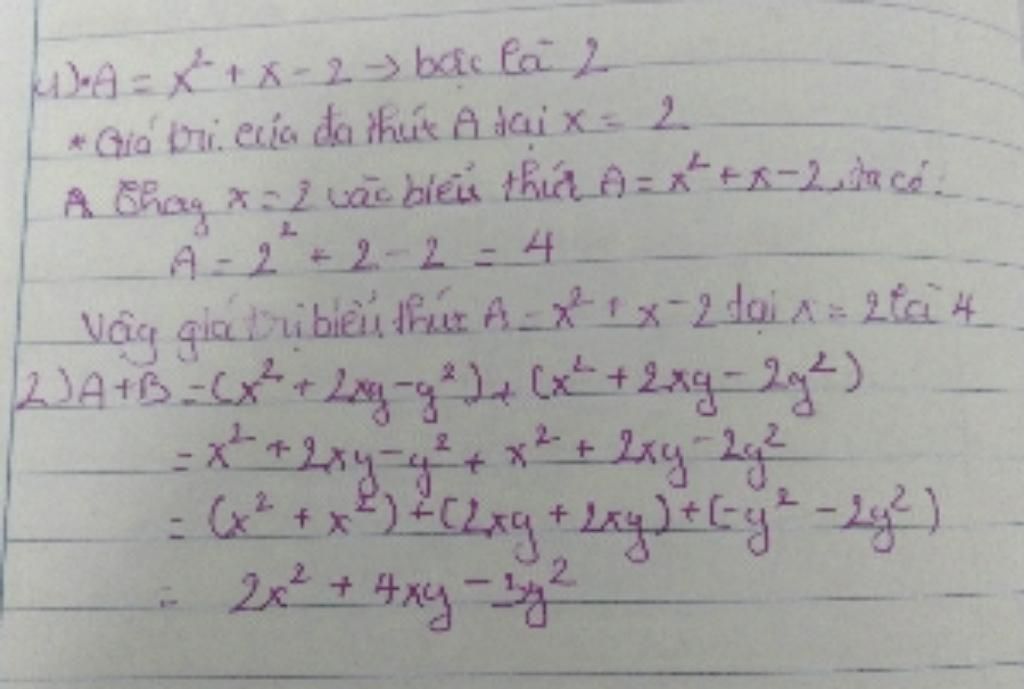 1) • A = x² + x - 2 → bậc là 2
* Giá trị của đa thức A tại x = 2
A Thay x = 2 vào biểu thức A = x² + x - 2, ta có:
A = 2² + 2 - 2 = 4
Vậy giá trị biểu thức A = x² + x - 2 tại x = 2 là 4
2) A + B = (x² + 2xy - y²) + (x² + 2xy - 2y²)
= x² + 2xy - y² + x² + 2xy - 2y²
= (x² + x²) + (2xy + 2xy) + (-y² - 2y²)
= 2x² + 4xy - 3y²